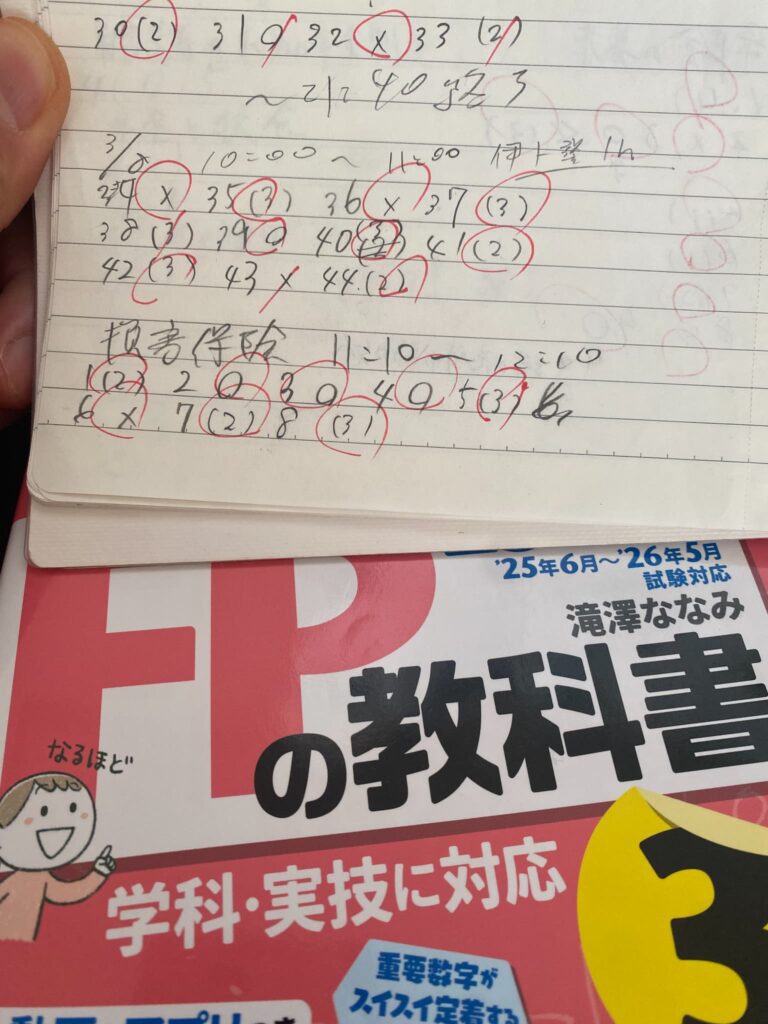 30 (2) 31 0 32 × 33 (2)
3/8 10:00 ~ 11:00 1h
34 × 35 (3) 36 × 37 (3)
38 (3) 39 0 40 41 (2)
42 (3) 43 × 44 (2)
損害保険 11:10 ~ 12:10
1 (2) 2 0 3 0 4 0 5 (3)
6 × 7 (2) 8 (3)
'25年6月~'26年5月
試験対応
滝澤ななみ
FPの教科書
なるほど
学科・実技に対応
重要数字が
スイスイ定着する